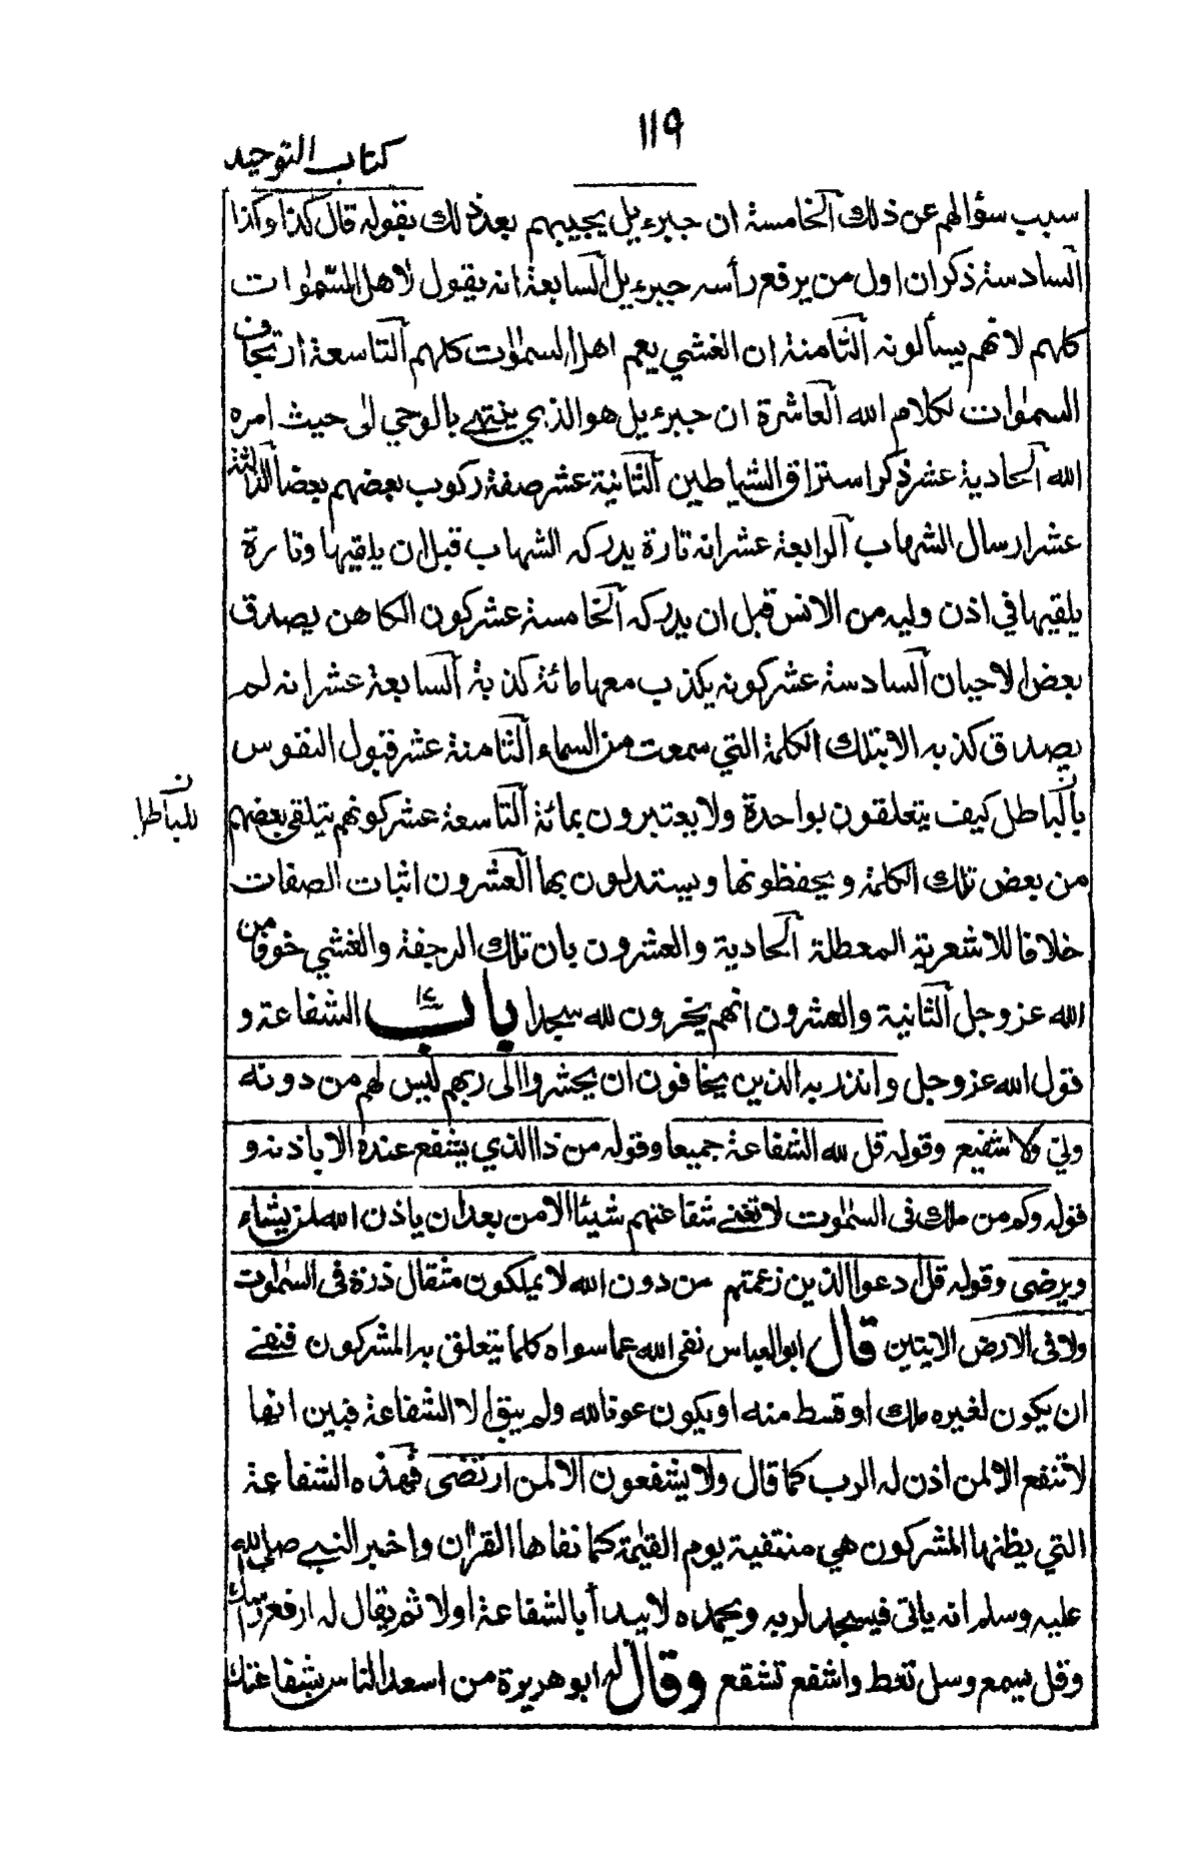 ١١٩
كتاب التوحيد
سبب سؤالهم عن ذلك الخامسة ان جبرءيل يجيبهم بعد ذلك بقوله قال كذا وكذا
السادسة ذكر ان اول من يرفع رأسه جبرءيل السابعة انه يقول لاهل السموات
كلهم لانهم يسألونه الثامنة ان الغشي يعم اهل السموات كلهم التاسعة ارتجاف
السموات لكلام الله العاشرة ان جبرءيل هو الذي ينتهي بالوحي الى حيث امره
الله الحادية عشر ذكر استراق الشياطين الثانية عشر صفة ركوب بعضهم بعضا الثالثة
عشر ارسال الشهاب الرابعة عشر انه تارة يدركه الشهاب قبل ان يلقيها وتارة
يلقيها في اذن وليه من الانس قبل ان يدركه الخامسة عشر كون الكاهن يصدق
بعض الاحيان السادسة عشر كونه يكذب معها مائة كذبة السابعة عشر انه لم
يصدق كذبه الا بتلك الكلمة التي سمعت من السماء الثامنة عشر قبول النفوس
بالباطل كيف يتعلقون بواحدة ولا يعتبرون بمائة التاسعة عشر كونهم يتلقى بعضهم
ن للباطل
من بعض تلك الكلمة ويحفظونها ويستدلون بها العشرون اثبات الصفات
خلافا للاشعرية المعطلة الحادية والعشرون بان تلك الرجفة والغشي خوفا من
الله عز وجل الثانية والعشرون انهم يخرون لله سجدا باب الشفاعة و
قول الله عز وجل وانذر به الذين يخافون ان يحشروا الى ربهم ليس لهم من دونه
ولي ولا شفيع وقوله قل لله الشفاعة جميعا وقوله من ذا الذي يشفع عنده الا باذنه و
قوله وكم من ملك في السموت لا تغني شفاعتهم شيئا الا من بعد ان ياذن الله لمن يشاء
ويرضى وقوله قل ادعوا الذين زعمتم من دون الله لا يملكون مثقال ذرة في السموت
ولا في الارض الايتين قال ابو العباس نفى الله عما سواه كلما يتعلق به المشركون فنفى
ان يكون لغيره ملك او قسط منه او يكون عونا لله ولم يبق الا الشفاعة فبين انها
لا تنفع الا لمن اذن له الرب كما قال ولا يشفعون الا لمن ارتضى فهذه الشفاعة
التي يظنها المشركون هي منتفية يوم القيمة كما نفاها القران واخبر النبي صلى الله
عليه وسلم انه ياتي فيسجد لربه ويحمده لا يبدأ بالشفاعة اولا ثم يقال له ارفع رأسك
وقل يسمع وسل تعط واشفع تشفع وقال له ابو هريرة من اسعد الناس بشفاعتك